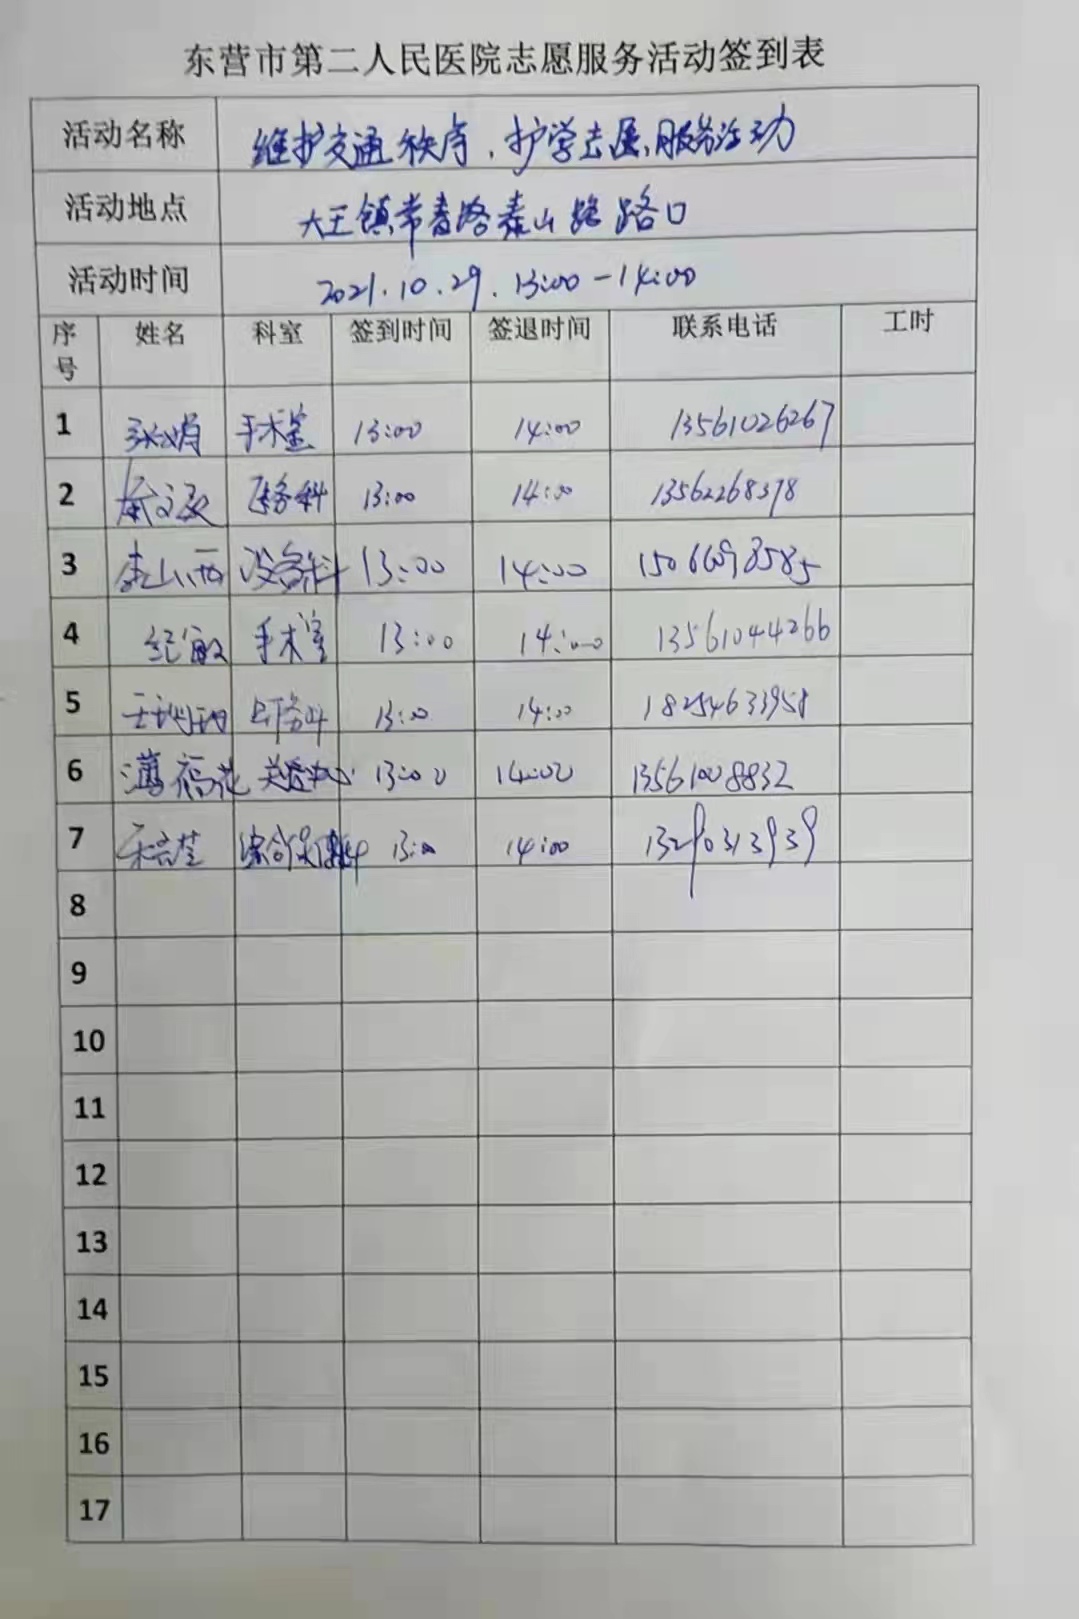 东营市第二人民医院志愿服务活动签到表
活动名称 维护交通秩序、护学志愿服务活动
活动地点 大王镇常春路泰山路路口
活动时间 2021.10.29. 13:00-14:00
序号 姓名 科室 签到时间 签退时间 联系电话 工时
1 张娟 手术室 13:00 14:00 13561026267
2 医务科 13:00 14:00 13562268378
3 设备科 13:00 14:00 15066098585
4 纪敏 手术室 13:00 14:00 13561044266
5 13:00 14:00 18254633958
6 薄福花 13:00 14:00 13561008832
7 13:00 14:00 13290313939
8
9
10
11
12
13
14
15
16
17